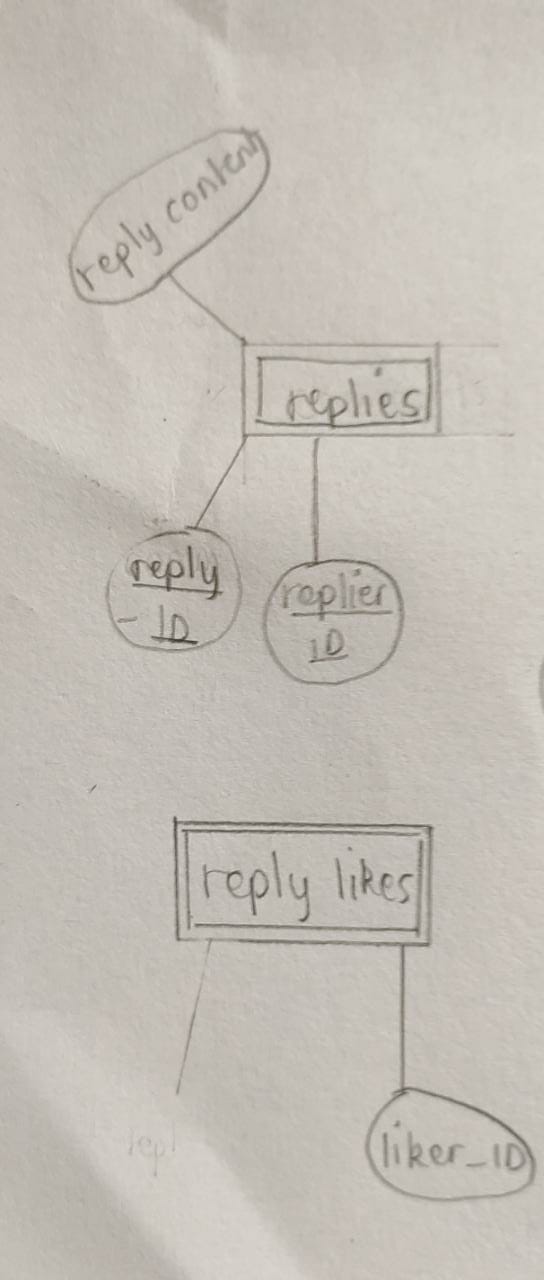 reply content
replies
reply
- ID
replier
ID
reply likes
liker_ID